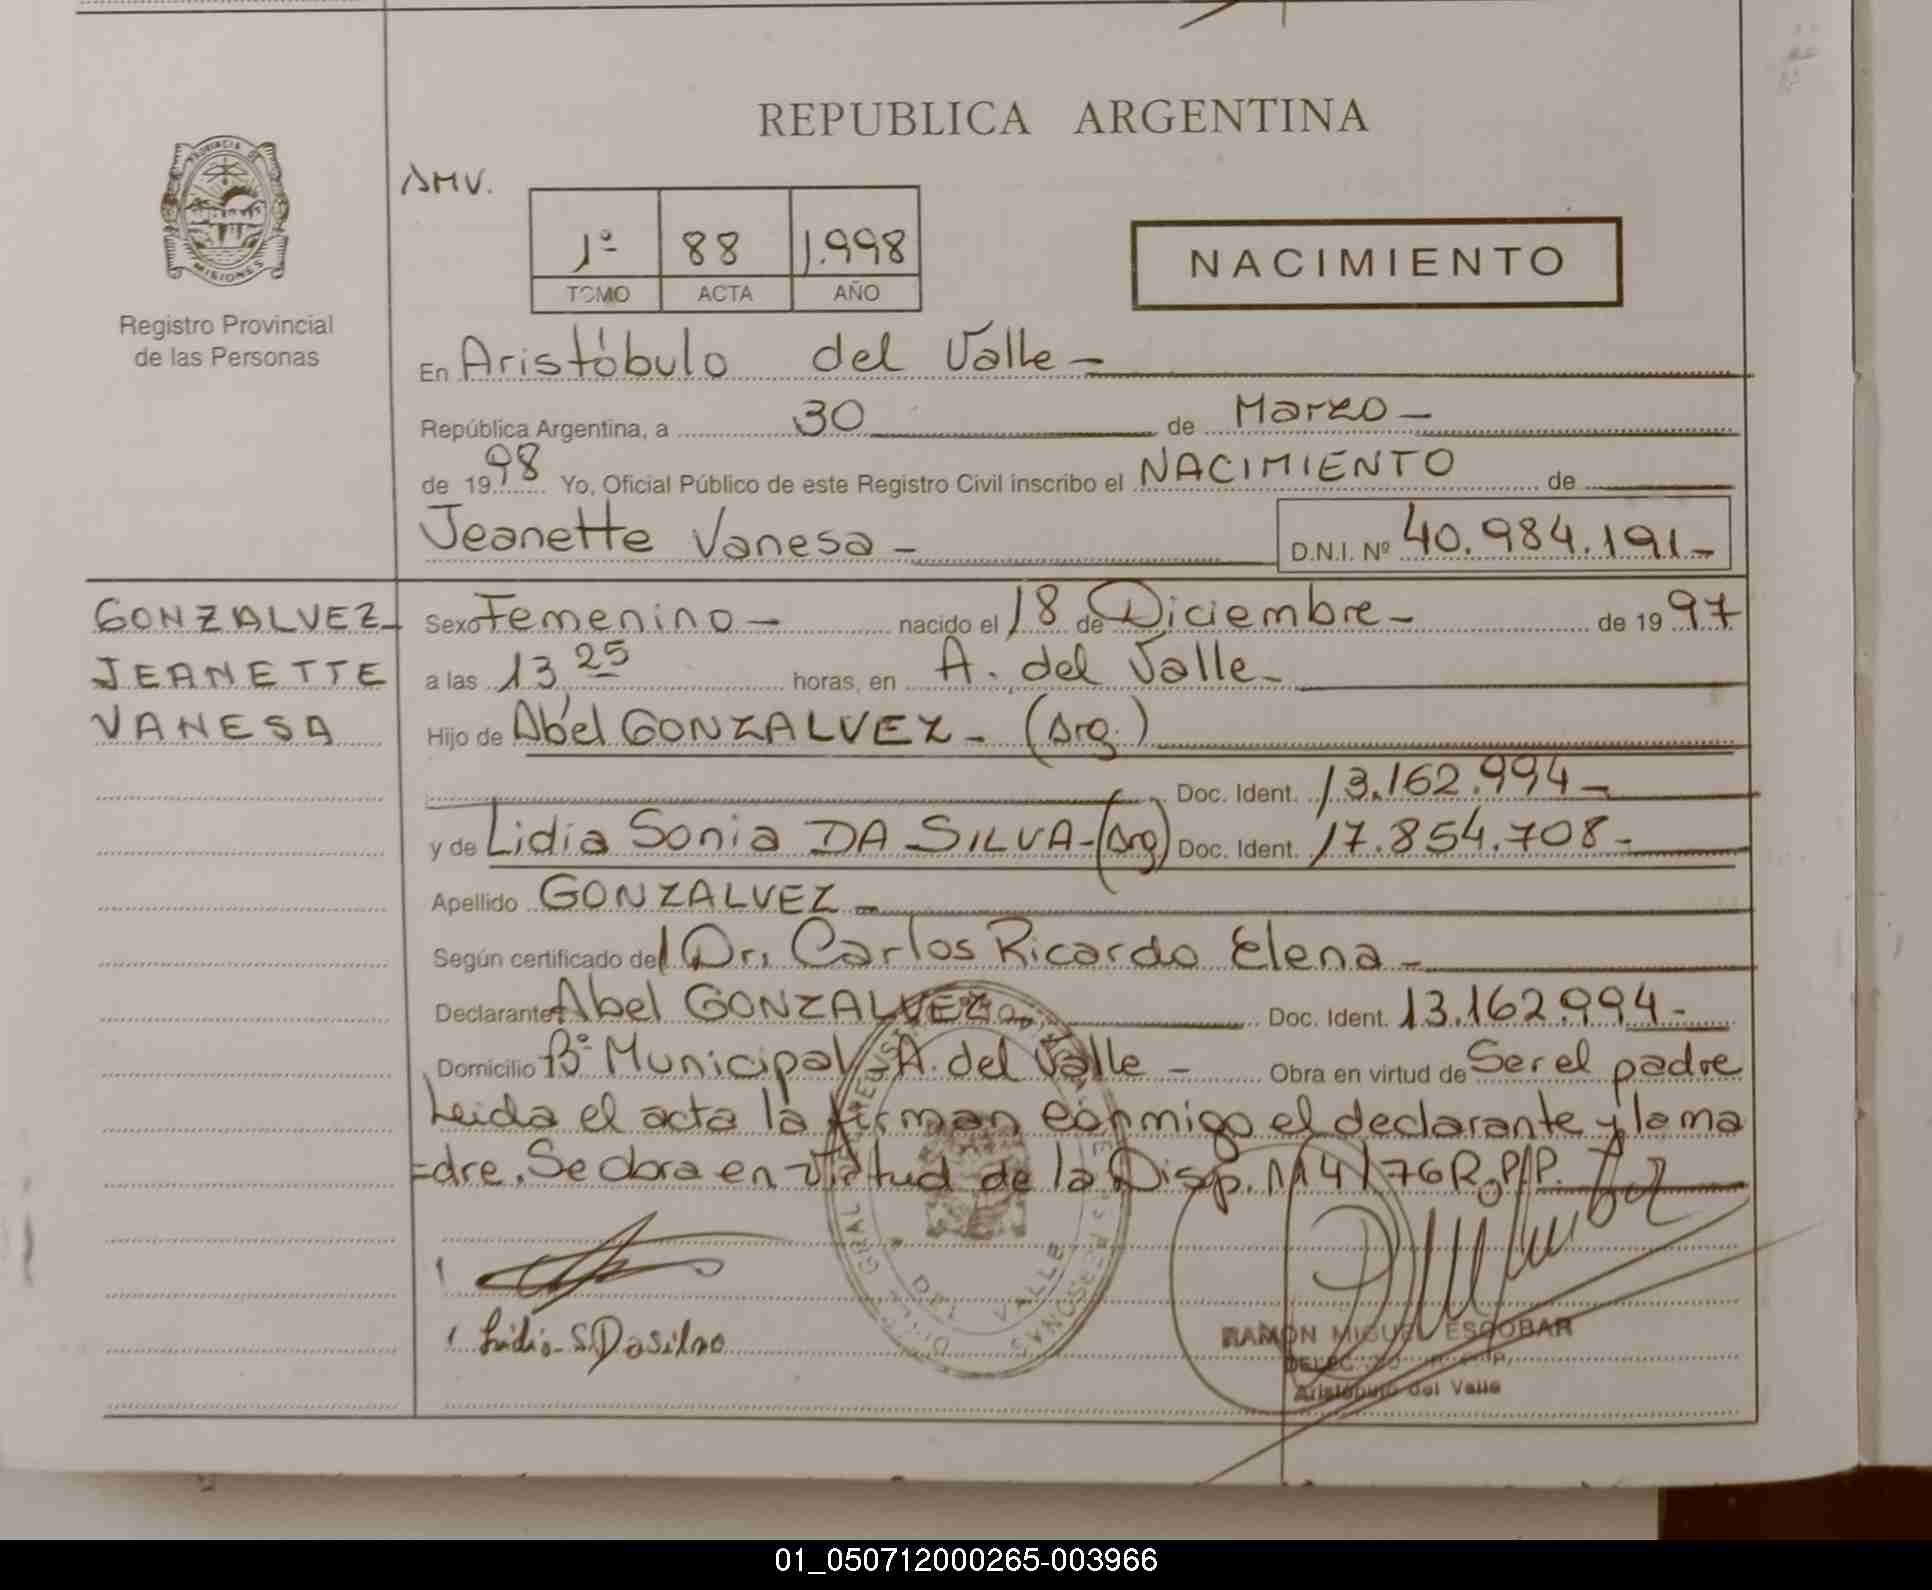 REPUBLICA ARGENTINA
PROVINCIA DE
MISIONES
Registro Provincial
de las Personas
AMV.
1º 88 1.998
TOMO ACTA AÑO
NACIMIENTO
En Aristóbulo del Valle -
República Argentina, a 30 de Marzo -
de 1998 Yo, Oficial Público de este Registro Civil inscribo el NACIMIENTO de
Jeanette Vanesa - D.N.I. Nº 40.984.191-
GONZALVEZ-
JEANETTE
VANESA
Sexo Femenino - nacido el 18 de Diciembre - de 1997
a las 13,25 horas, en A. del Valle -
Hijo de Abel GONZALVEZ - (Arg.)
Doc. Ident. 13.162.994 -
y de Lidia Sonia DA SILVA - (Arg) Doc. Ident. 17.854.708 -
Apellido GONZALVEZ -
Según certificado del Dr. Carlos Ricardo Elena -
Declarante Abel GONZALVEZ Doc. Ident. 13.162.994 -
Domicilio Bº Municipal - A. del Valle - Obra en virtud de Ser el padre
Leida el acta la firman conmigo el declarante y la ma
=dre. Se obra en virtud de la Disp. 114/76 R.P.P.
Lidia S. Da Silva
DEL VALLE
RAMON MIGUEL ESCOBAR
Aristóbulo del Valle
01_050712000265-003966